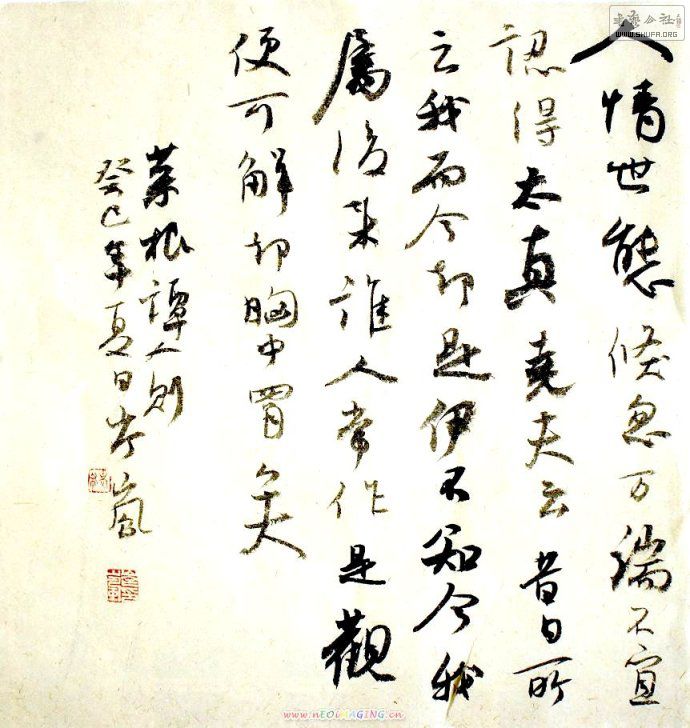 人情世態倏忽万端不宜
認得太真堯夫云昔日所
云我而今却是伊不知今我
屬後来誰人常作是觀
便可解却胸中罥矣
菜根譚 則
癸巳年夏日 嵐
书艺公社
WWW.SHUFA.ORG
www.nEOiMAGING.cn